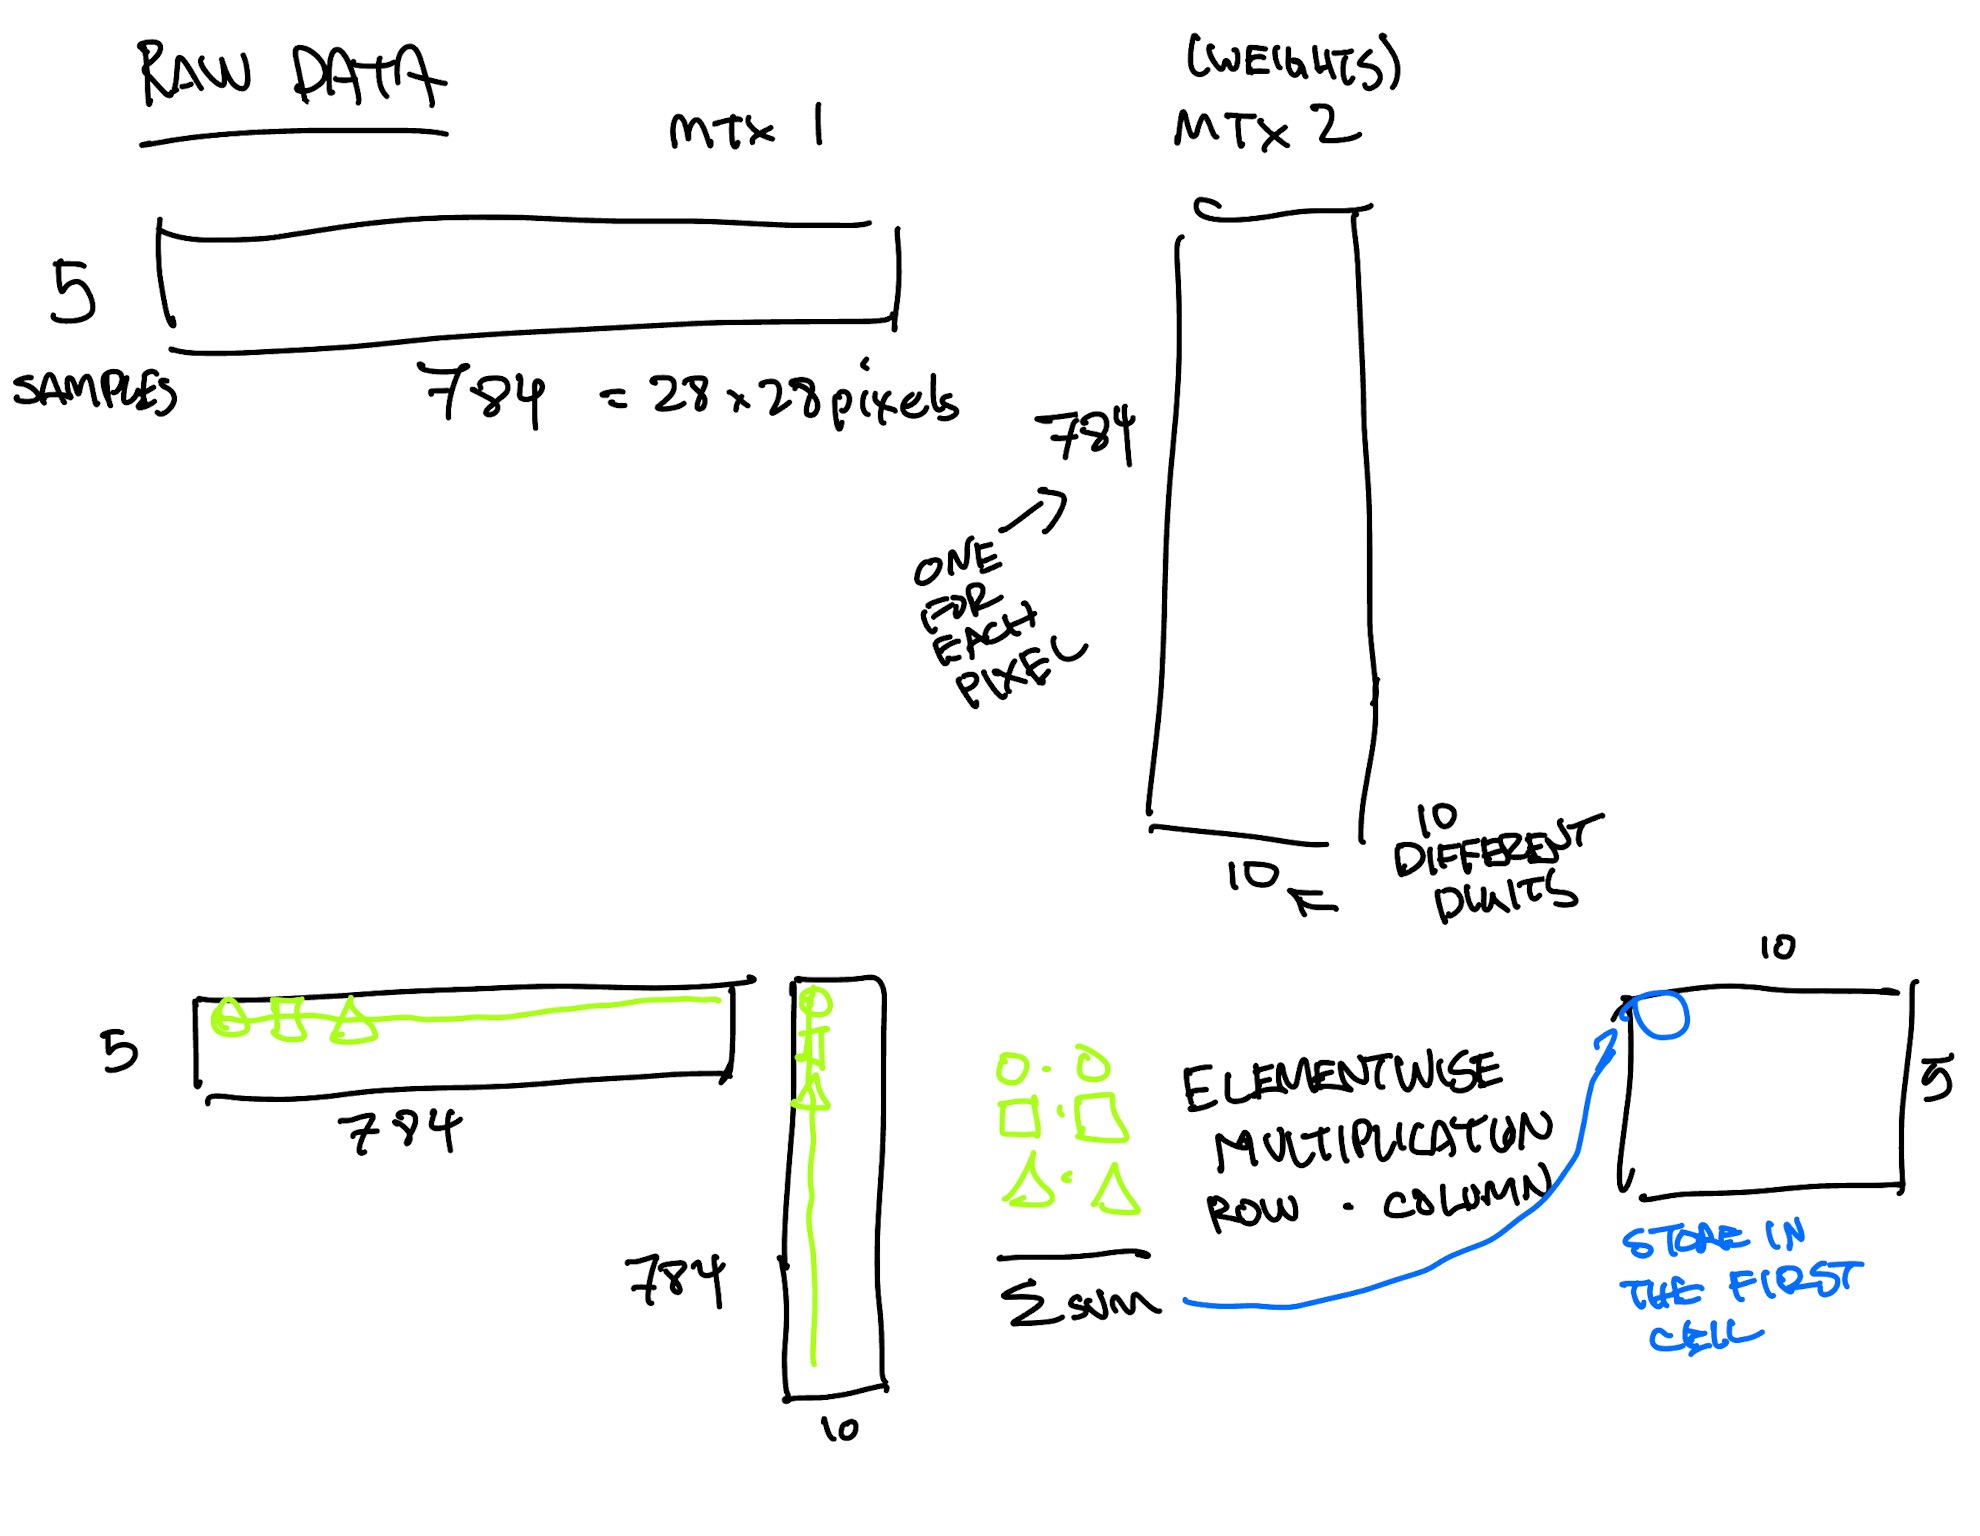 RAW DATA
MTX 1
(WEIGHTS)
MTX 2
5
SAMPLES
784 = 28 x 28 pixels
784
ONE
FOR
EACH
PIXEL
10
10
DIFFERENT
DIGITS
5
784
784
10
ELEMENTWISE
MULTIPLICATION
ROW · COLUMN
Σ SUM
10
5
STORE IN
THE FIRST
CELL